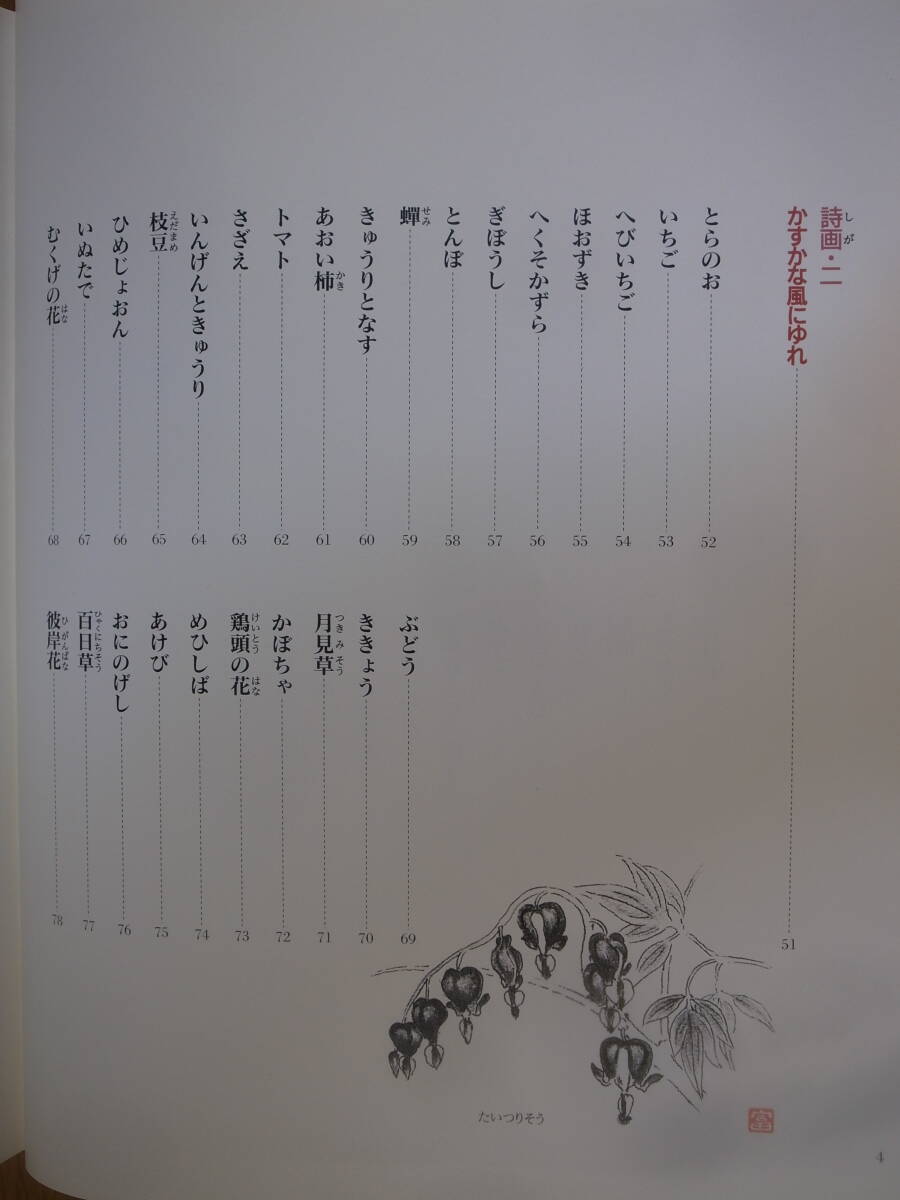 詩画・二
しが
かすかな風にゆれ 51
とらのお 52
いちご 53
へびいちご 54
ほおずき 55
へくそかずら 56
ぎぼうし 57
とんぼ 58
蟬 59
せみ
きゅうりとなす 60
あおい柿 61
かき
トマト 62
さざえ 63
いんげんときゅうり 64
枝豆 65
えだまめ
ひめじょおん 66
いぬたで 67
むくげの花 68
はな
ぶどう 69
ききょう 70
月見草 71
つきみそう
かぼちゃ 72
鶏頭の花 73
けいとう はな
めひしば 74
あけび 75
おにのげし 76
百日草 77
ひゃくにちそう
彼岸花 78
ひがんばな
たいつりそう
富
4